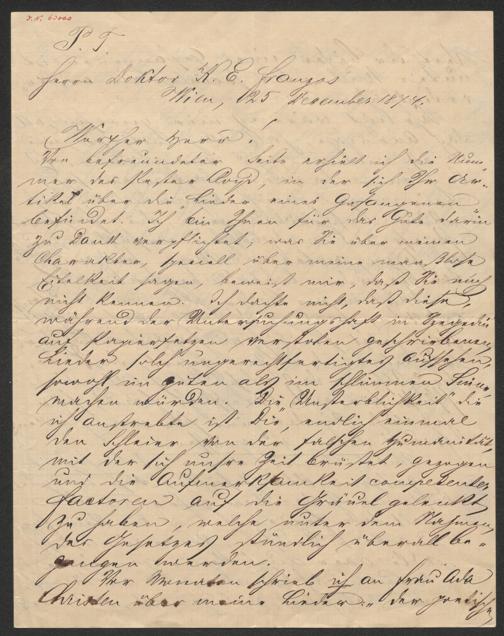 J.N. 63060
P. T.
Herrn Doktor K. E. Franzos
Wien, 25 Dezember 1874.
Werther Herr!
Von befreundeter Seite erhielt ich die Num-
mer des Pester Lloyd, in der sich Ihr Ar-
tikel über die Lieder eines Gefangenen
befindet. Ich bin Ihnen für das Gute darin
zu Dank verpflichtet; was Sie über meinen
Charakter, speciell über meine maaslose
Eitelkeit sagen, beweist mir, daß Sie mich
nicht kennen. Ich dachte nicht, daß diese
während der Untersuchungshaft in Szegedin
auf Papierfetzen verstolen geschriebenen
Lieder solch ungerechtfertigtes Aufsehen,
sowohl im guten als im schlimmen Sinne
machen würden. Die "Unsterblichkeit" die
ich anstrebte ist die, endlich einmal
den Schleier von der falschen Humanität,
mit der sich unsre Zeit brüstet, gezogen
und die Aufmerksamkeit competenter
Factoren auf die Gräuel gelenkt
zu haben, welche unter dem Nahmen
des Gesetzes stündlich überall be-
gangen werden.
Vor Monaten schrieb ich an Frau Ada
Christen über meine Lieder: "der poetische